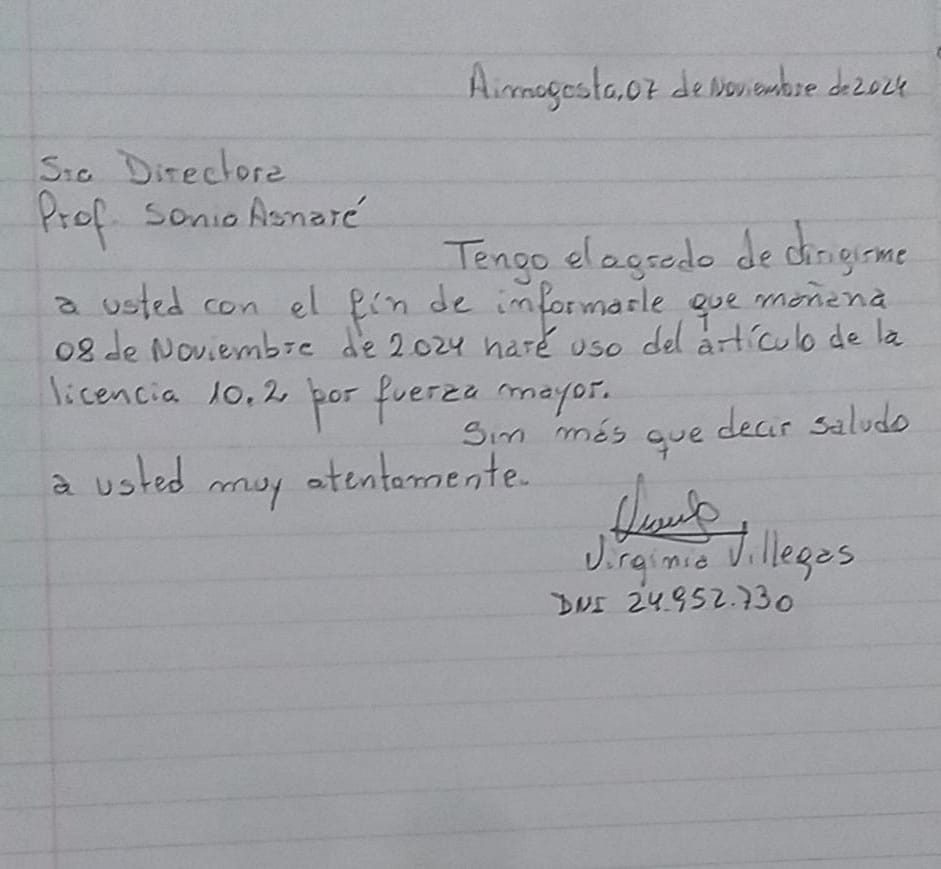 Aimogasta, 07 de Noviembre de 2024
Sra Directora
Prof. Sonia Asnaré
Tengo el agrado de dirigirme
a usted con el fin de informarle que mañana
08 de Noviembre de 2.024 haré uso del artículo de la
licencia 10.2 por fuerza mayor.
Sin más que decir saludo
a usted muy atentamente.
Virginia Villegas
DNI 24.952.730